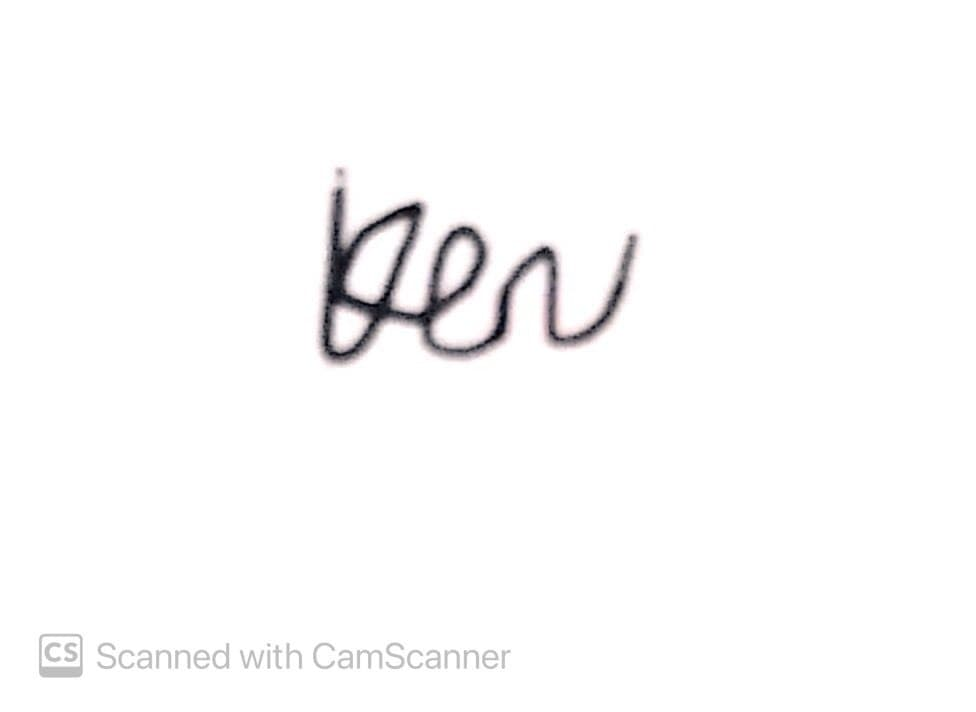 Ken
CS Scanned with CamScanner